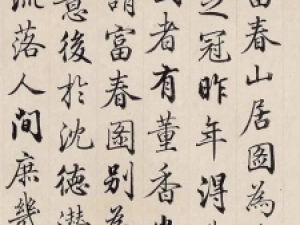 富春山居圖為
之冠昨年得
者有董香
謂富春圖別為
意後於沈德潛
流落人間庶幾